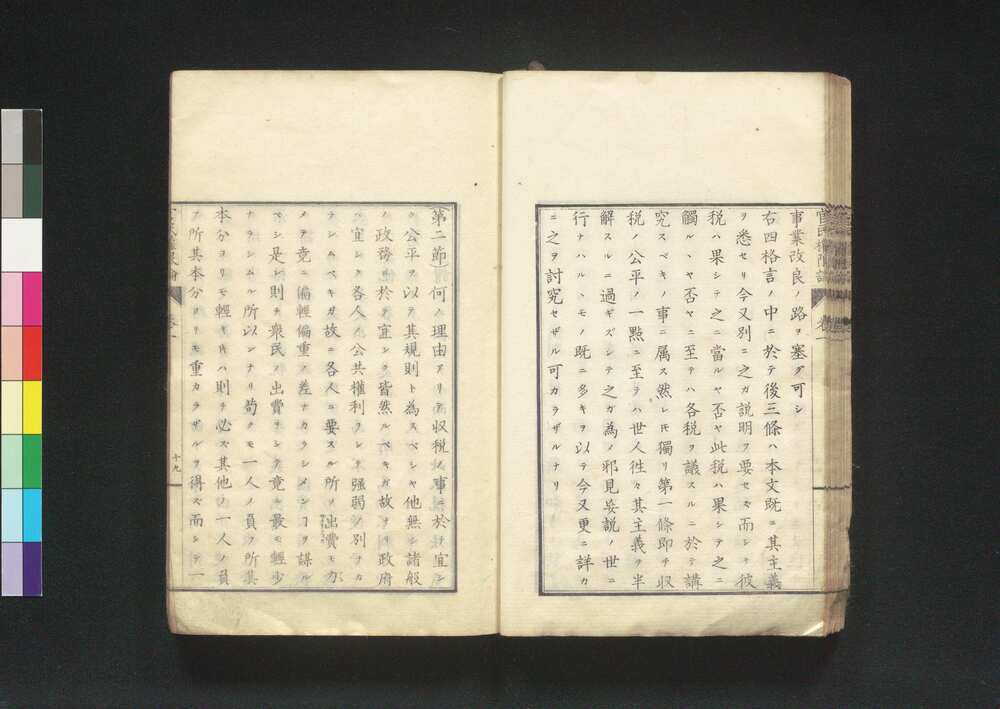 事業改良ノ路ヲ塞グ可シ
右四格言ノ中ニ於テ後三條ハ本文既ニ其主義
ヲ悉セリ今又別ニ之ガ説明ヲ要セズ而シテ彼
税ハ果シテ之ニ當ルヤ否ヤ此税ハ果シテ之ニ
觸ルヽヤ否ヤニ至テハ各税ヲ議スルニ於テ講
究スベキノ事ニ属ス然レ𪜈獨リ第一條即チ収
税ノ公平ノ一點ニ至テハ世人徃々其主義ヲ半
解スルニ過ギズシテ之ガ為メ邪見妄説ノ世ニ
行ナハルヽモノ既ニ多キヲ以テ今又更ニ詳カ
ニ之ヲ討究セザル可カラザルナリ
第二節 何ノ理由アリテ収税ノ事ニ於テ宜シ
ク公平ヲ以テ其規則ト為スベシヤ他無シ諸般
ノ政務ニ於テ宜シク皆然ルベキガ故ナリ政府
ハ宜シク各人ノ公共權利ヲシテ強弱ノ別ナカ
ラシムベキガ故ニ各人ニ要スル所ノ出費モ亦
メテ竞ニ偏輕偏重ノ差ナカラシメンコヲ謀ル
ベシ是レ則チ衆民ノ出費ヲシテ竟ニ最モ輕少
ナラシムル所以ンナリ苟クモ一人ノ負フ所其
本分ヨリモ輕キキハ則チ必ズ其他ノ一人ノ負
フ所其本分ヨリモ重カラザルヲ得ズ而シテ一
十九